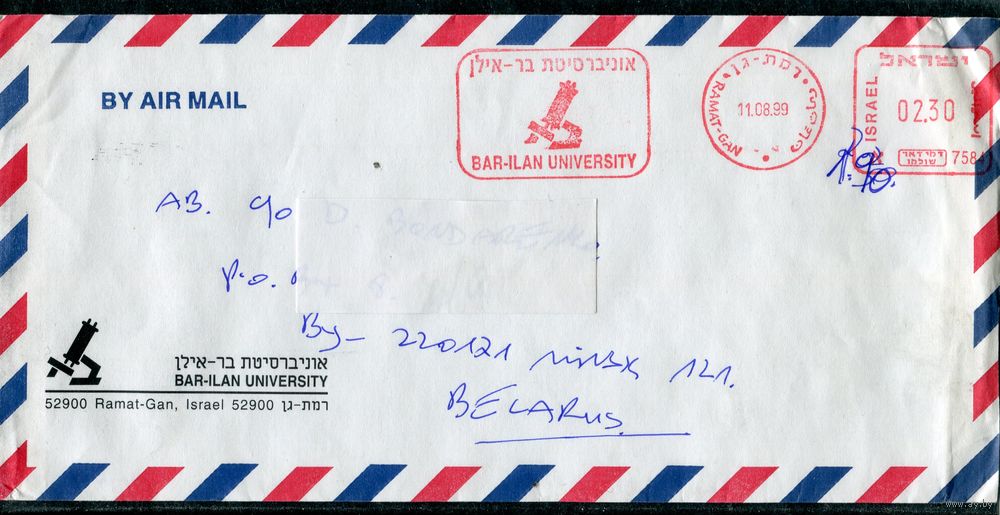 BY AIR MAIL
אוניברסיטת בר-אילן
BAR-ILAN UNIVERSITY
רמת-גן
RAMAT-GAN
11.08.99
ישראל
ISRAEL
02.30
דמי דאר
שולמו
758
AB.
P.O.
By- 220121
BELARUS
אוניברסיטת בר-אילן
BAR-ILAN UNIVERSITY
52900 Ramat-Gan, Israel 52900 רמת-גן
www.ay.by